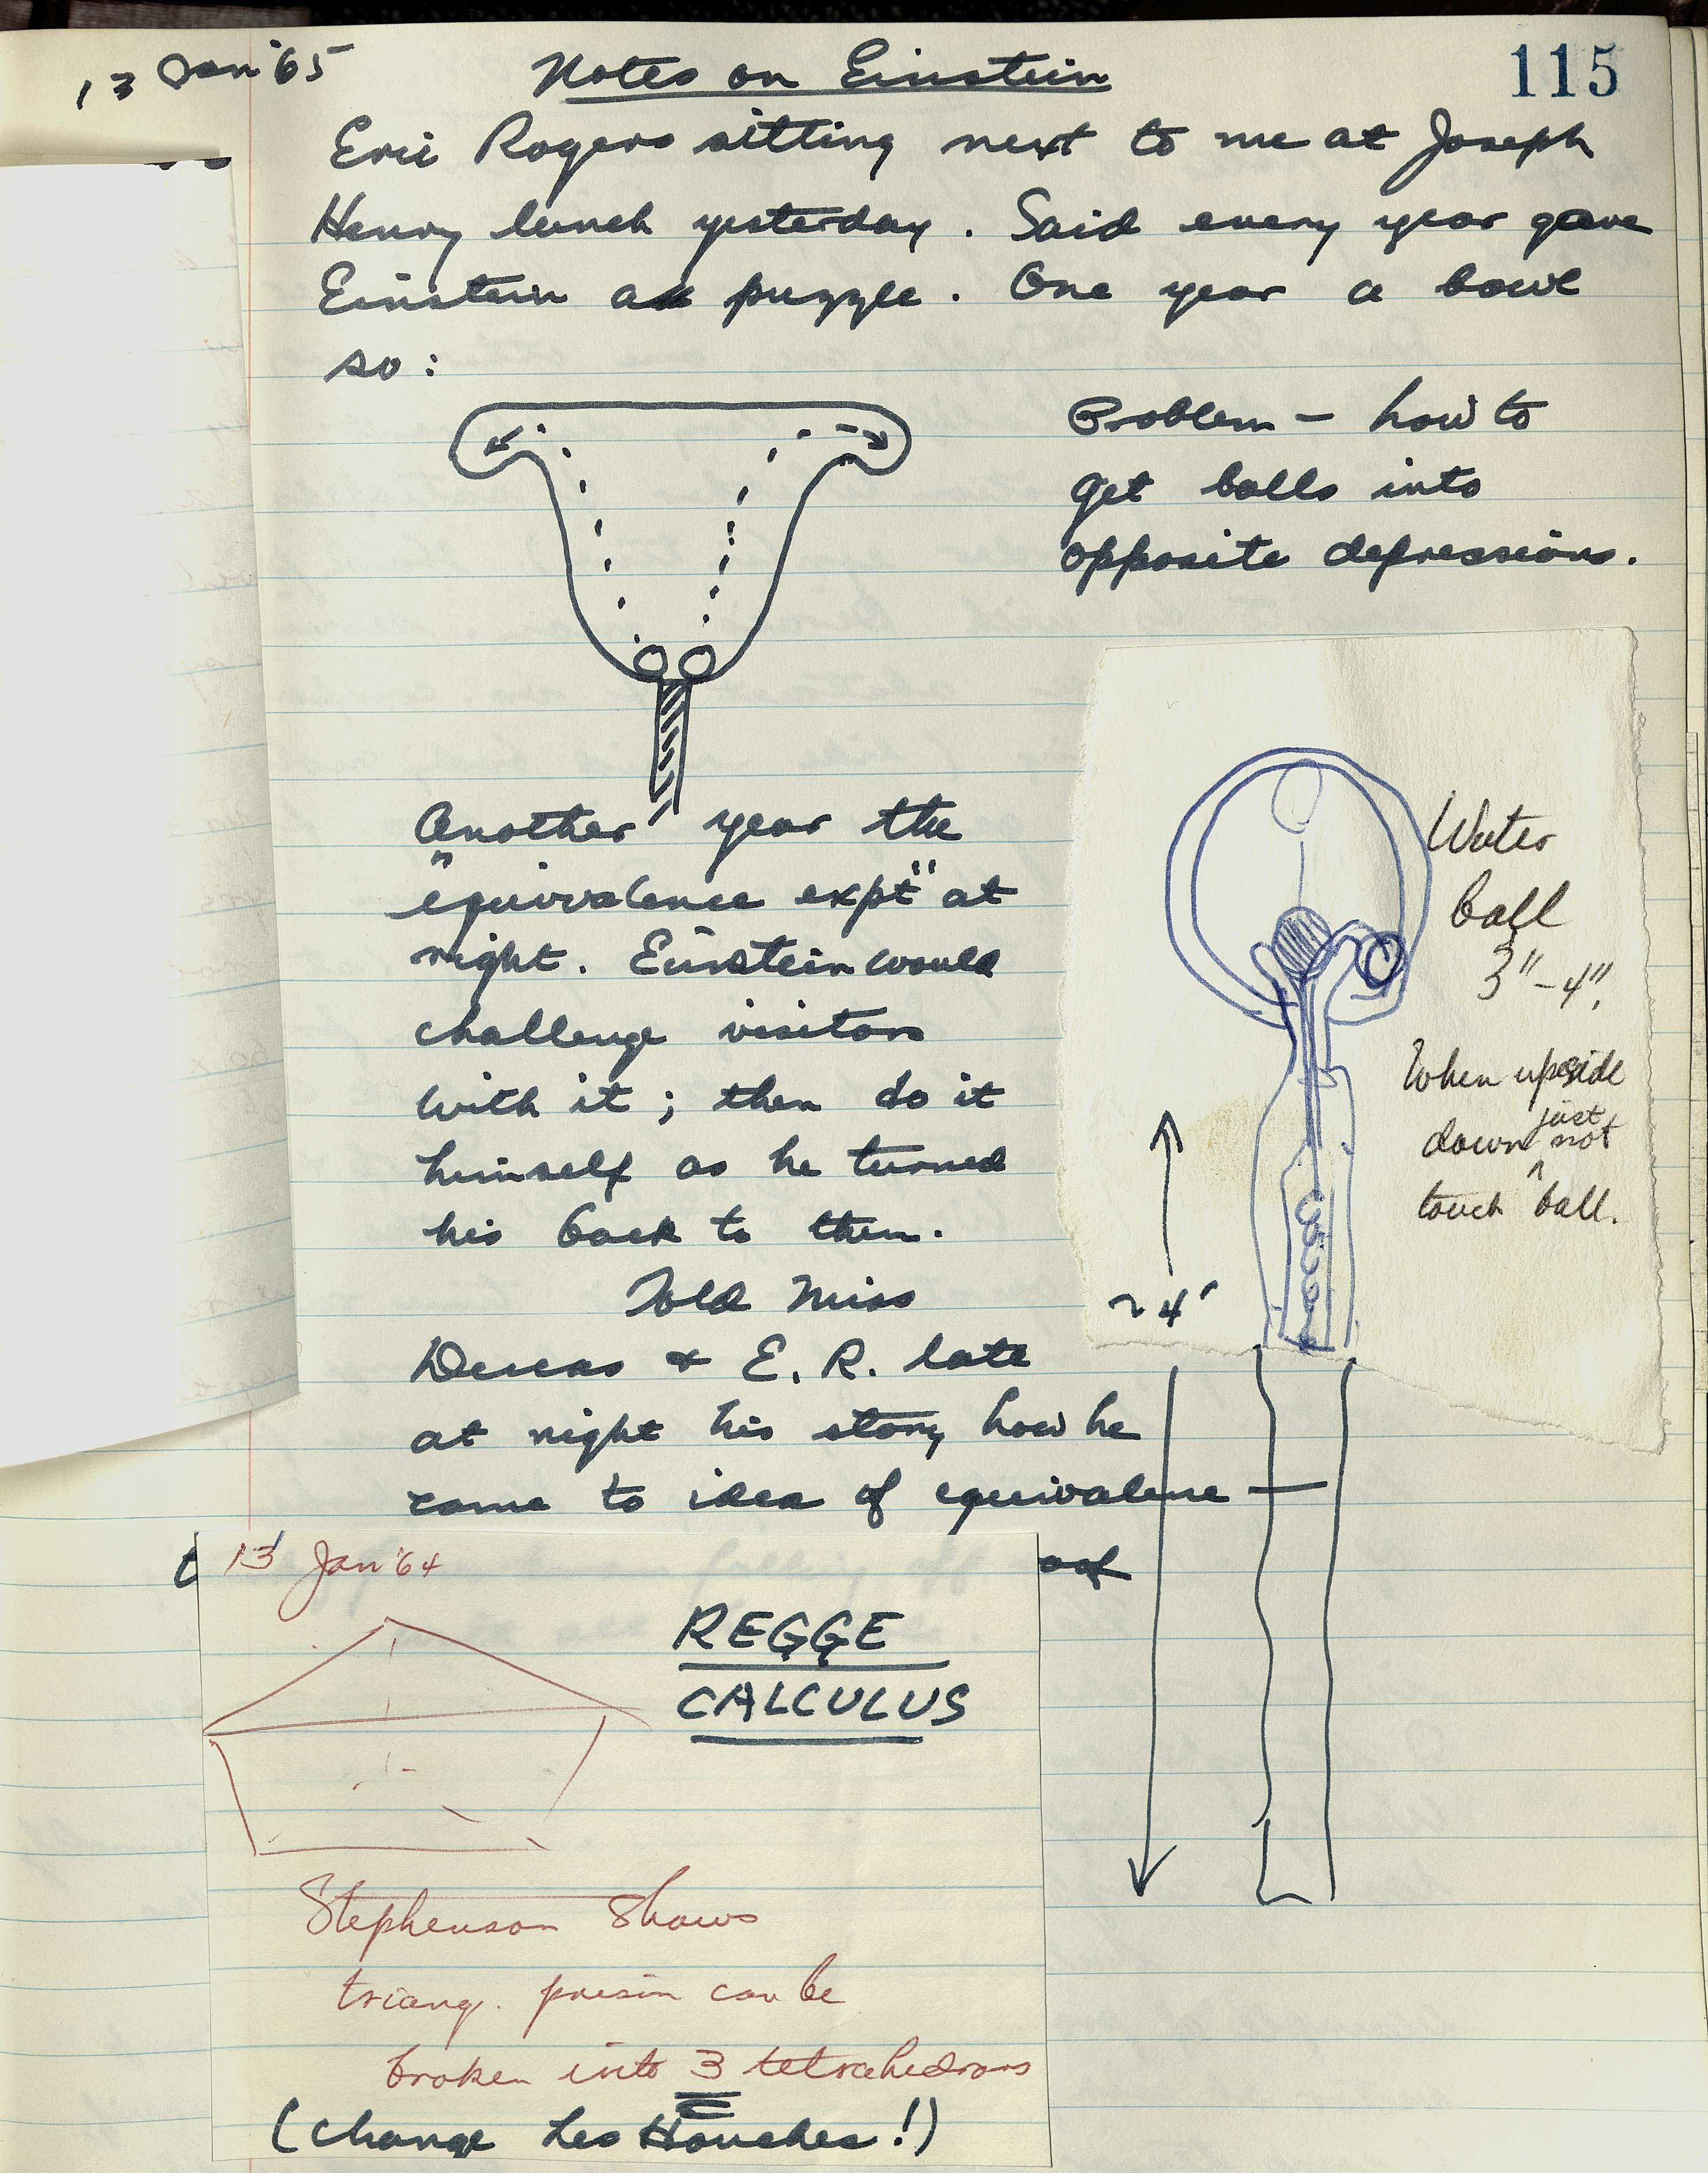 13 Jan '65
Notes on Einstein
115
Eric Rogers sitting next to me at Joseph
Henry lunch yesterday. Said every year gave
Einstein a puzzle. One year a bowl
so:
Problem – how to
get balls into
opposite depressions.
Another year the
"equivalence expt" at
right. Einstein would
challenge visitors
with it; then do it
himself as he turned
his back to them.
Told Miss
Dukas & E. R. late
at night his story how he
came to idea of equivalence —
Water
ball
3"–4".
When upside
down just not
touch ball.
~4'
13 Jan '64
REGGE
CALCULUS
Stephenson shows
triang. prism can be
broken into 3 tetrahedrons
(Change Les Houches!)